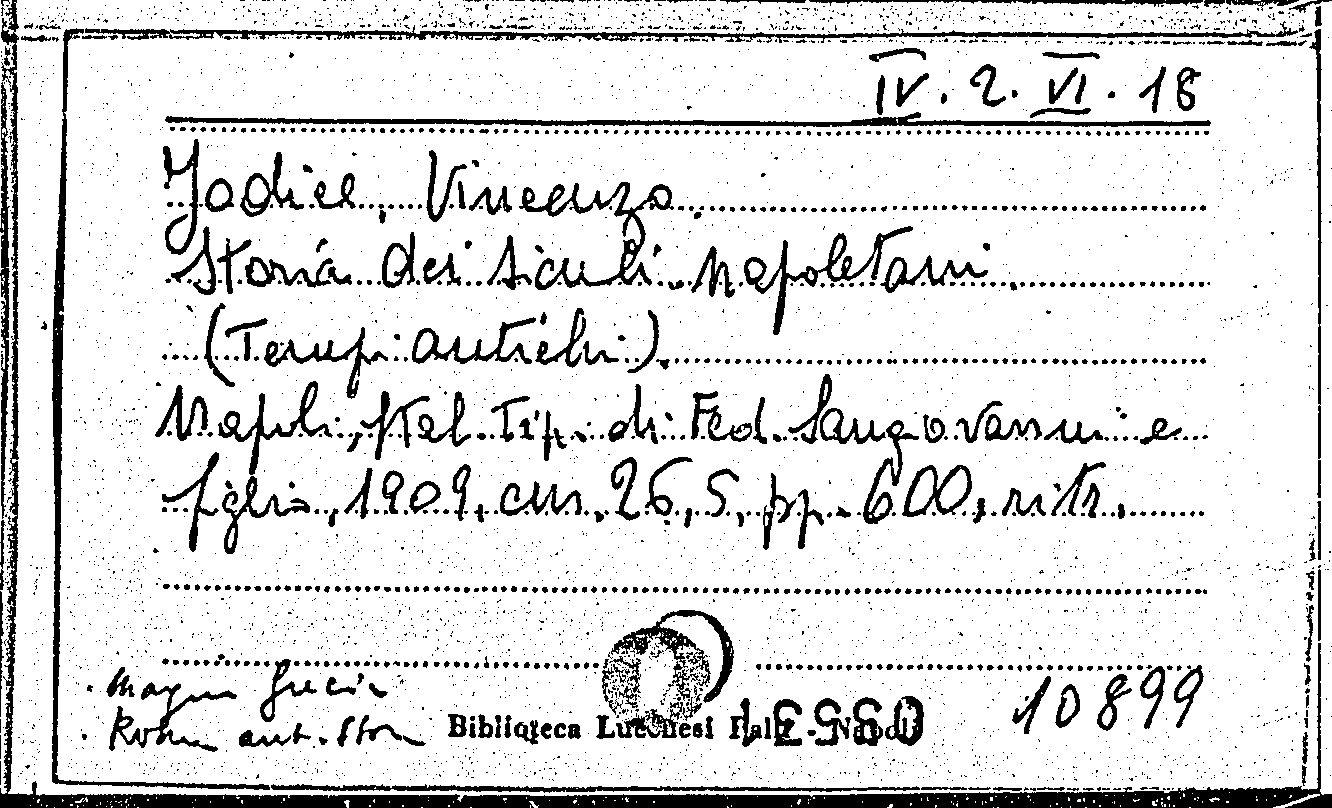 IV. 2. VI. 18
Jodice, Vincenzo.
Storia dei siculi-napoletani.
(Tempi antichi).
Napoli, Stal. Tip. di Fed. Sangiovanni e
figlio, 1909, cm. 26,5, pp. 600, ritr.
. Magna Grecia
. Roma ant. Stor
Biblioteca Lucchesi Palli - Napoli
10899